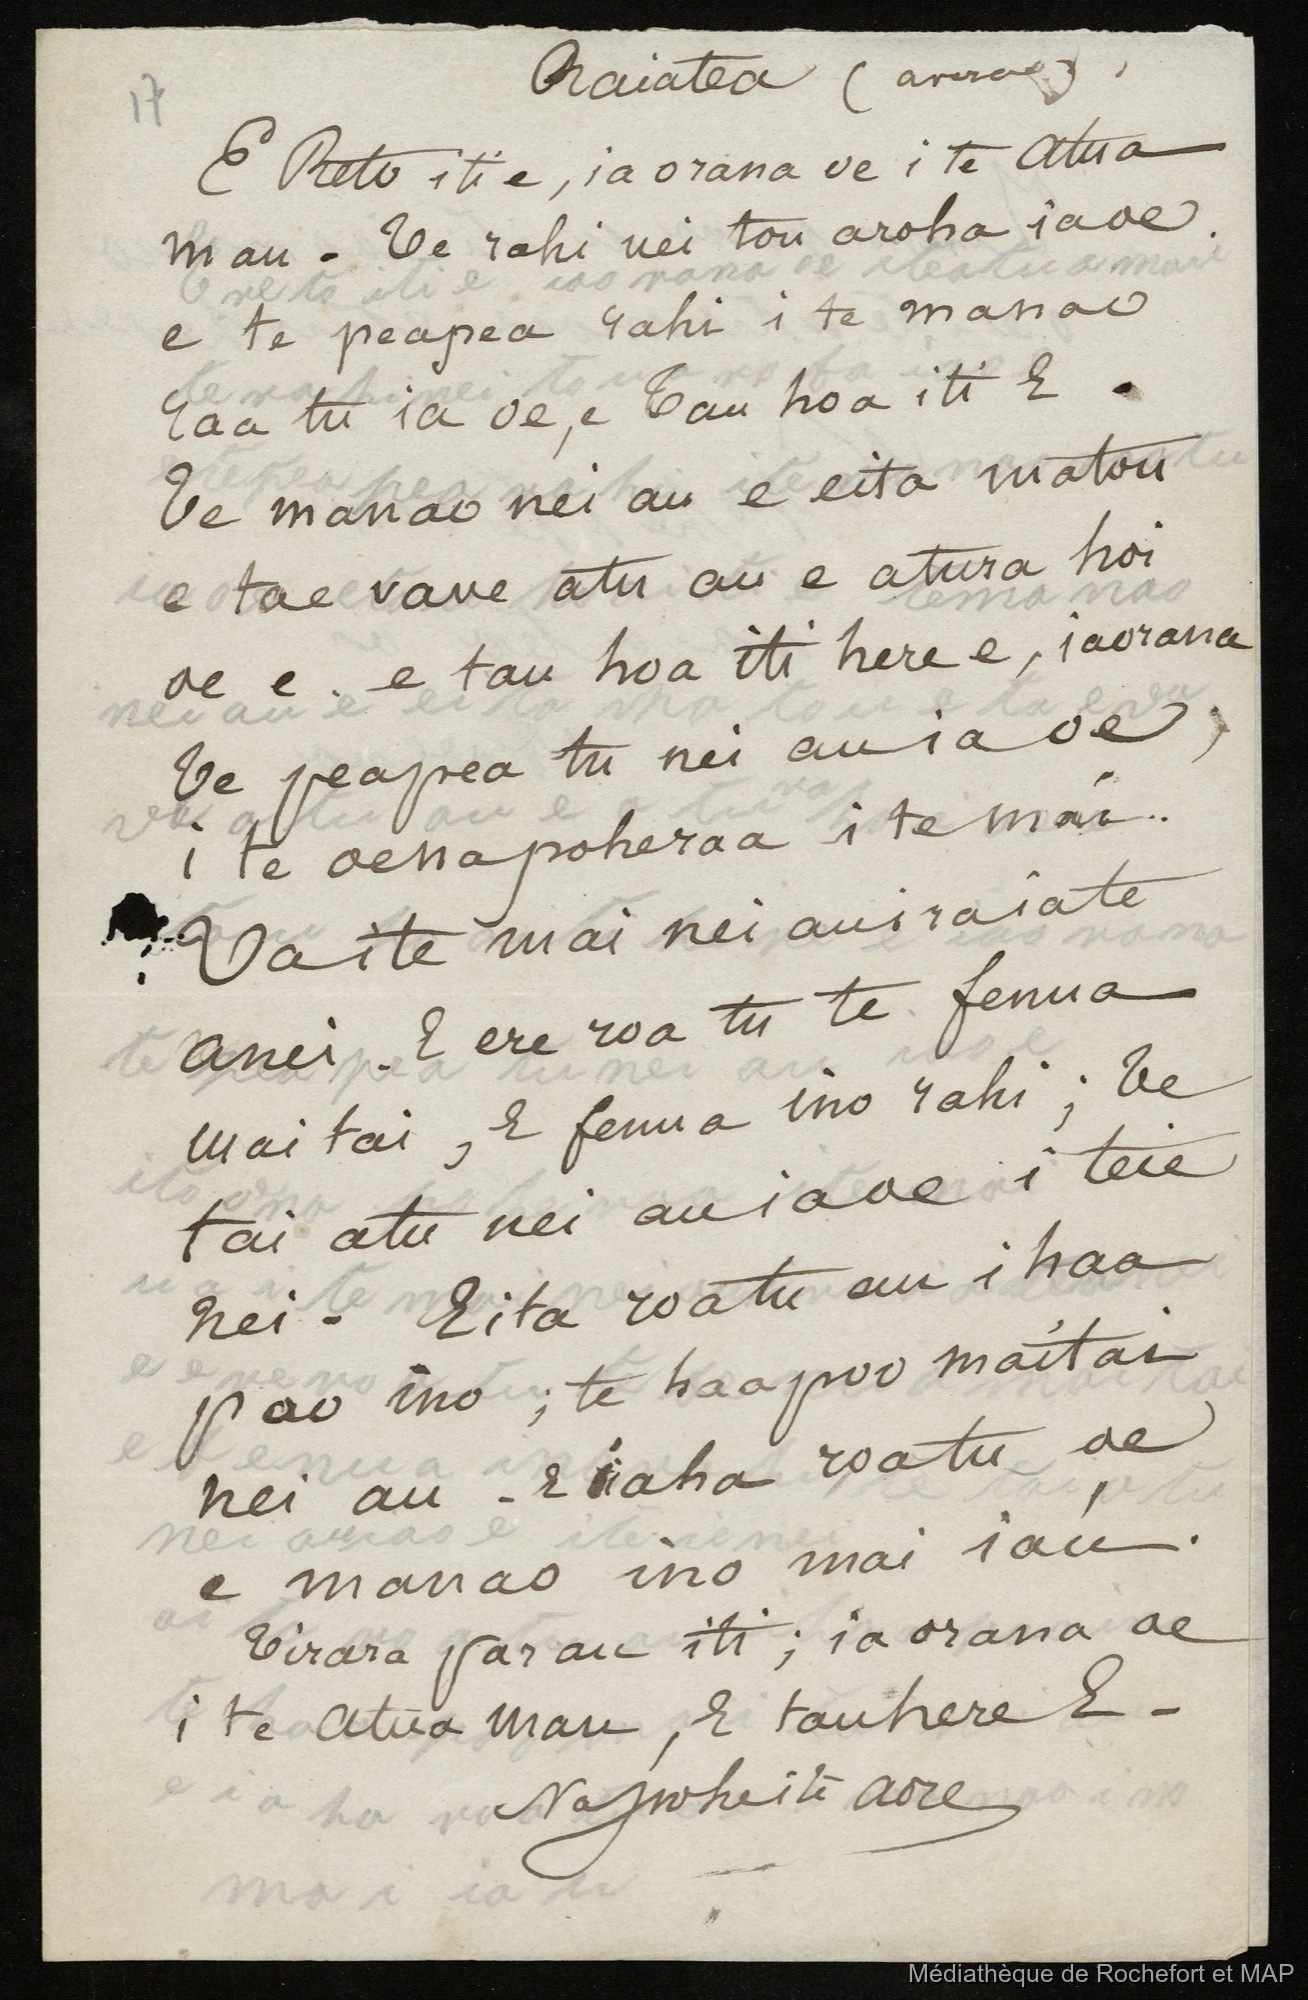 17
Raiatea (
E Reto iti e, ia orana oe i te Atua
mau - Te rahi nei tou aroha iaoe.
e te peapea rahi i te manao
raa tu ia oe, e Tau hoa iti E -
Te manao nei au e eita matou
e tae vave atu au e atura hoi
oe e. e tau hoa iti here e, iaorana
Te peapea tu nei au ia oe,
i te oenapoheraa i te mái..
Ua ite mai nei aui raiate
anei. E ere roa tu te fenua
maitai, E fenua ino rahi; Te
tai atu nei au iaoe i teie
nei - Eita roatu au i haa
pao ino; te haapoo maítai
nei au - Eiaha roatu oe
e manao ino mai iaú.
Tirara parau iti; ia orana oe
i te Atua mau, E tauhere E -
Napoheiti Aore
Médiathèque de Rochefort et MAP